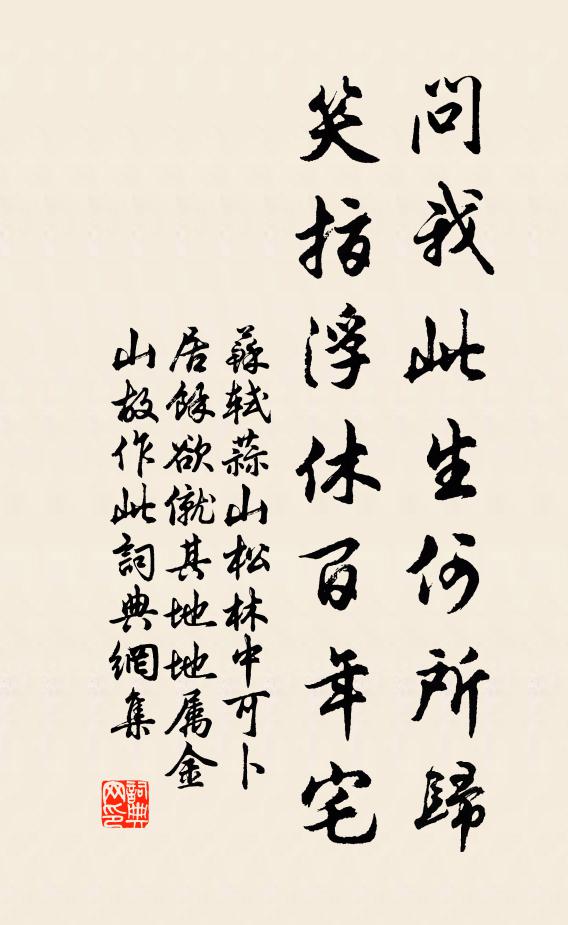 問我此生何所歸
笑指浮休百年宅
蘇軾蒜山松林中可卜
居餘欲僦其地地屬金
山故作此詞典網集
詞典
网印